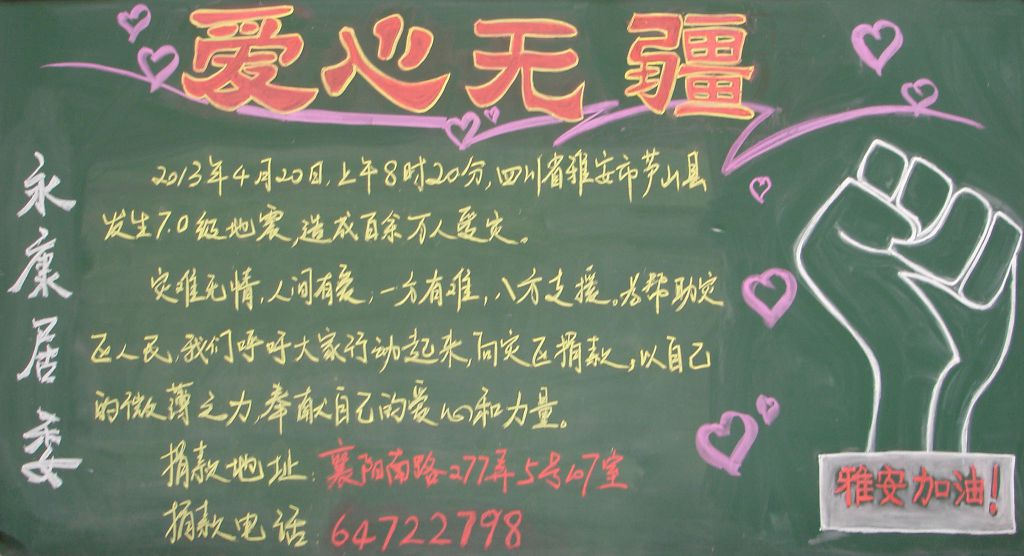 爱心无疆
永康居委
2013年4月20日,上午8时20分,四川省雅安市芦山县
发生7.0级地震,造成百余万人受灾。
灾难无情,人间有爱,一方有难,八方支援。为帮助灾
区人民,我们呼吁大家行动起来,向灾区捐款,以自己
的微薄之力,奉献自己的爱心和力量。
捐款地址:襄阳南路277弄5号107室
捐款电话:64722798
雅安加油!